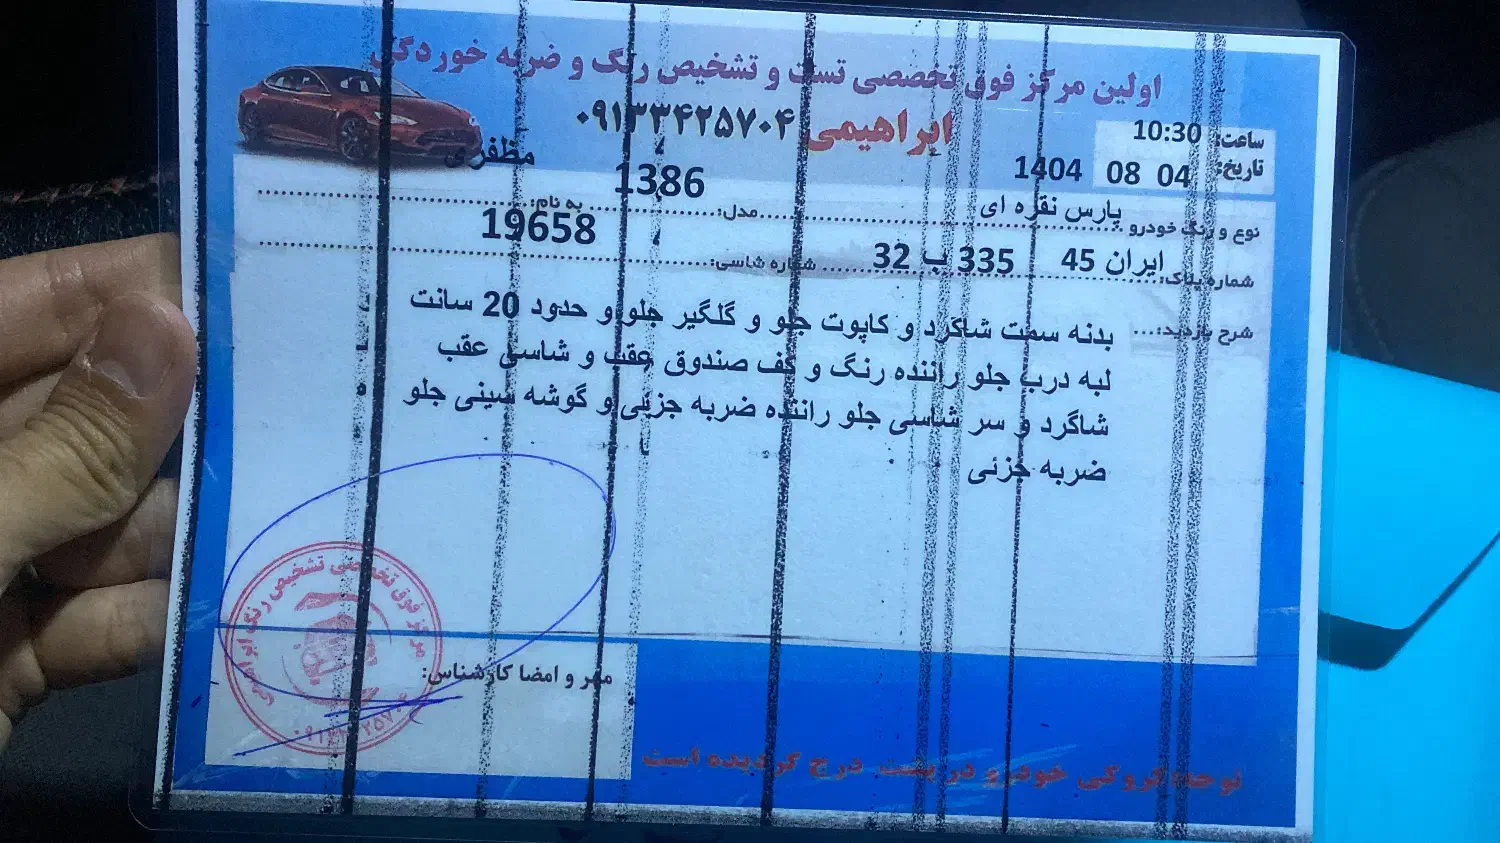 اولین مرکز فوق تخصصی تست و تشخیص رنگ و ضربه خوردگی
ابراهیمی ۰۹۱۳۳۴۲۵۷۰۴
ساعت: 10:30
تاریخ: 04 08 1404
نوع و رنگ خودرو پارس نقره ای مدل: 1386 به نام: مظفری
شماره پلاک: ایران 45 335 ب 32 شماره شاسی: 19658
شرح بازدید:... بدنه سمت شاگرد و کاپوت جلو و گلگیر جلو و حدود 20 سانت
لبه درب جلو راننده رنگ و کف صندوق عقب و شاسی عقب
شاگرد و سر شاسی جلو راننده ضربه جزیی و گوشه سینی جلو
ضربه جزئی
مهر و امضا کارشناس:
مرکز فوق تخصصی تشخیص رنگ ابراهیمی
توجه: کروکی خودرو در پشت درج گردیده است